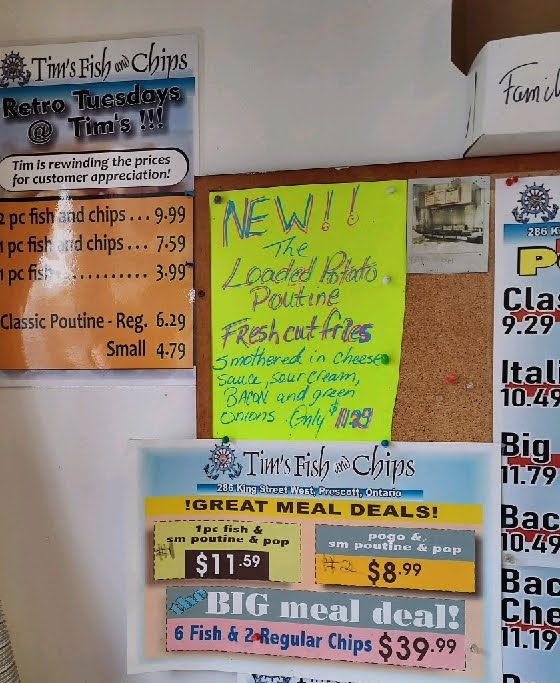 Tim's Fish and Chips
Retro Tuesdays
@ Tim's !!!
Tim is rewinding the prices
for customer appreciation!
2 pc fish and chips ... 9.99
1 pc fish and chips ... 7.59
1 pc fish .......... 3.99
Classic Poutine - Reg. 6.29
Small 4.79
NEW!!
The
Loaded Potato
Poutine
Fresh cut fries
smothered in cheese
sauce, sour cream,
BACON and green
onions. Only $11.29
Tim's Fish and Chips
286 King Street West, Prescott, Ontario
!GREAT MEAL DEALS!
1pc fish &
sm poutine & pop
#1
$11.59
pogo &
sm poutine & pop
#2
$8.99
the BIG meal deal!
6 Fish & 2 Regular Chips $39.99
286
9.29
10.49
Big
11.79
10.49
11.19